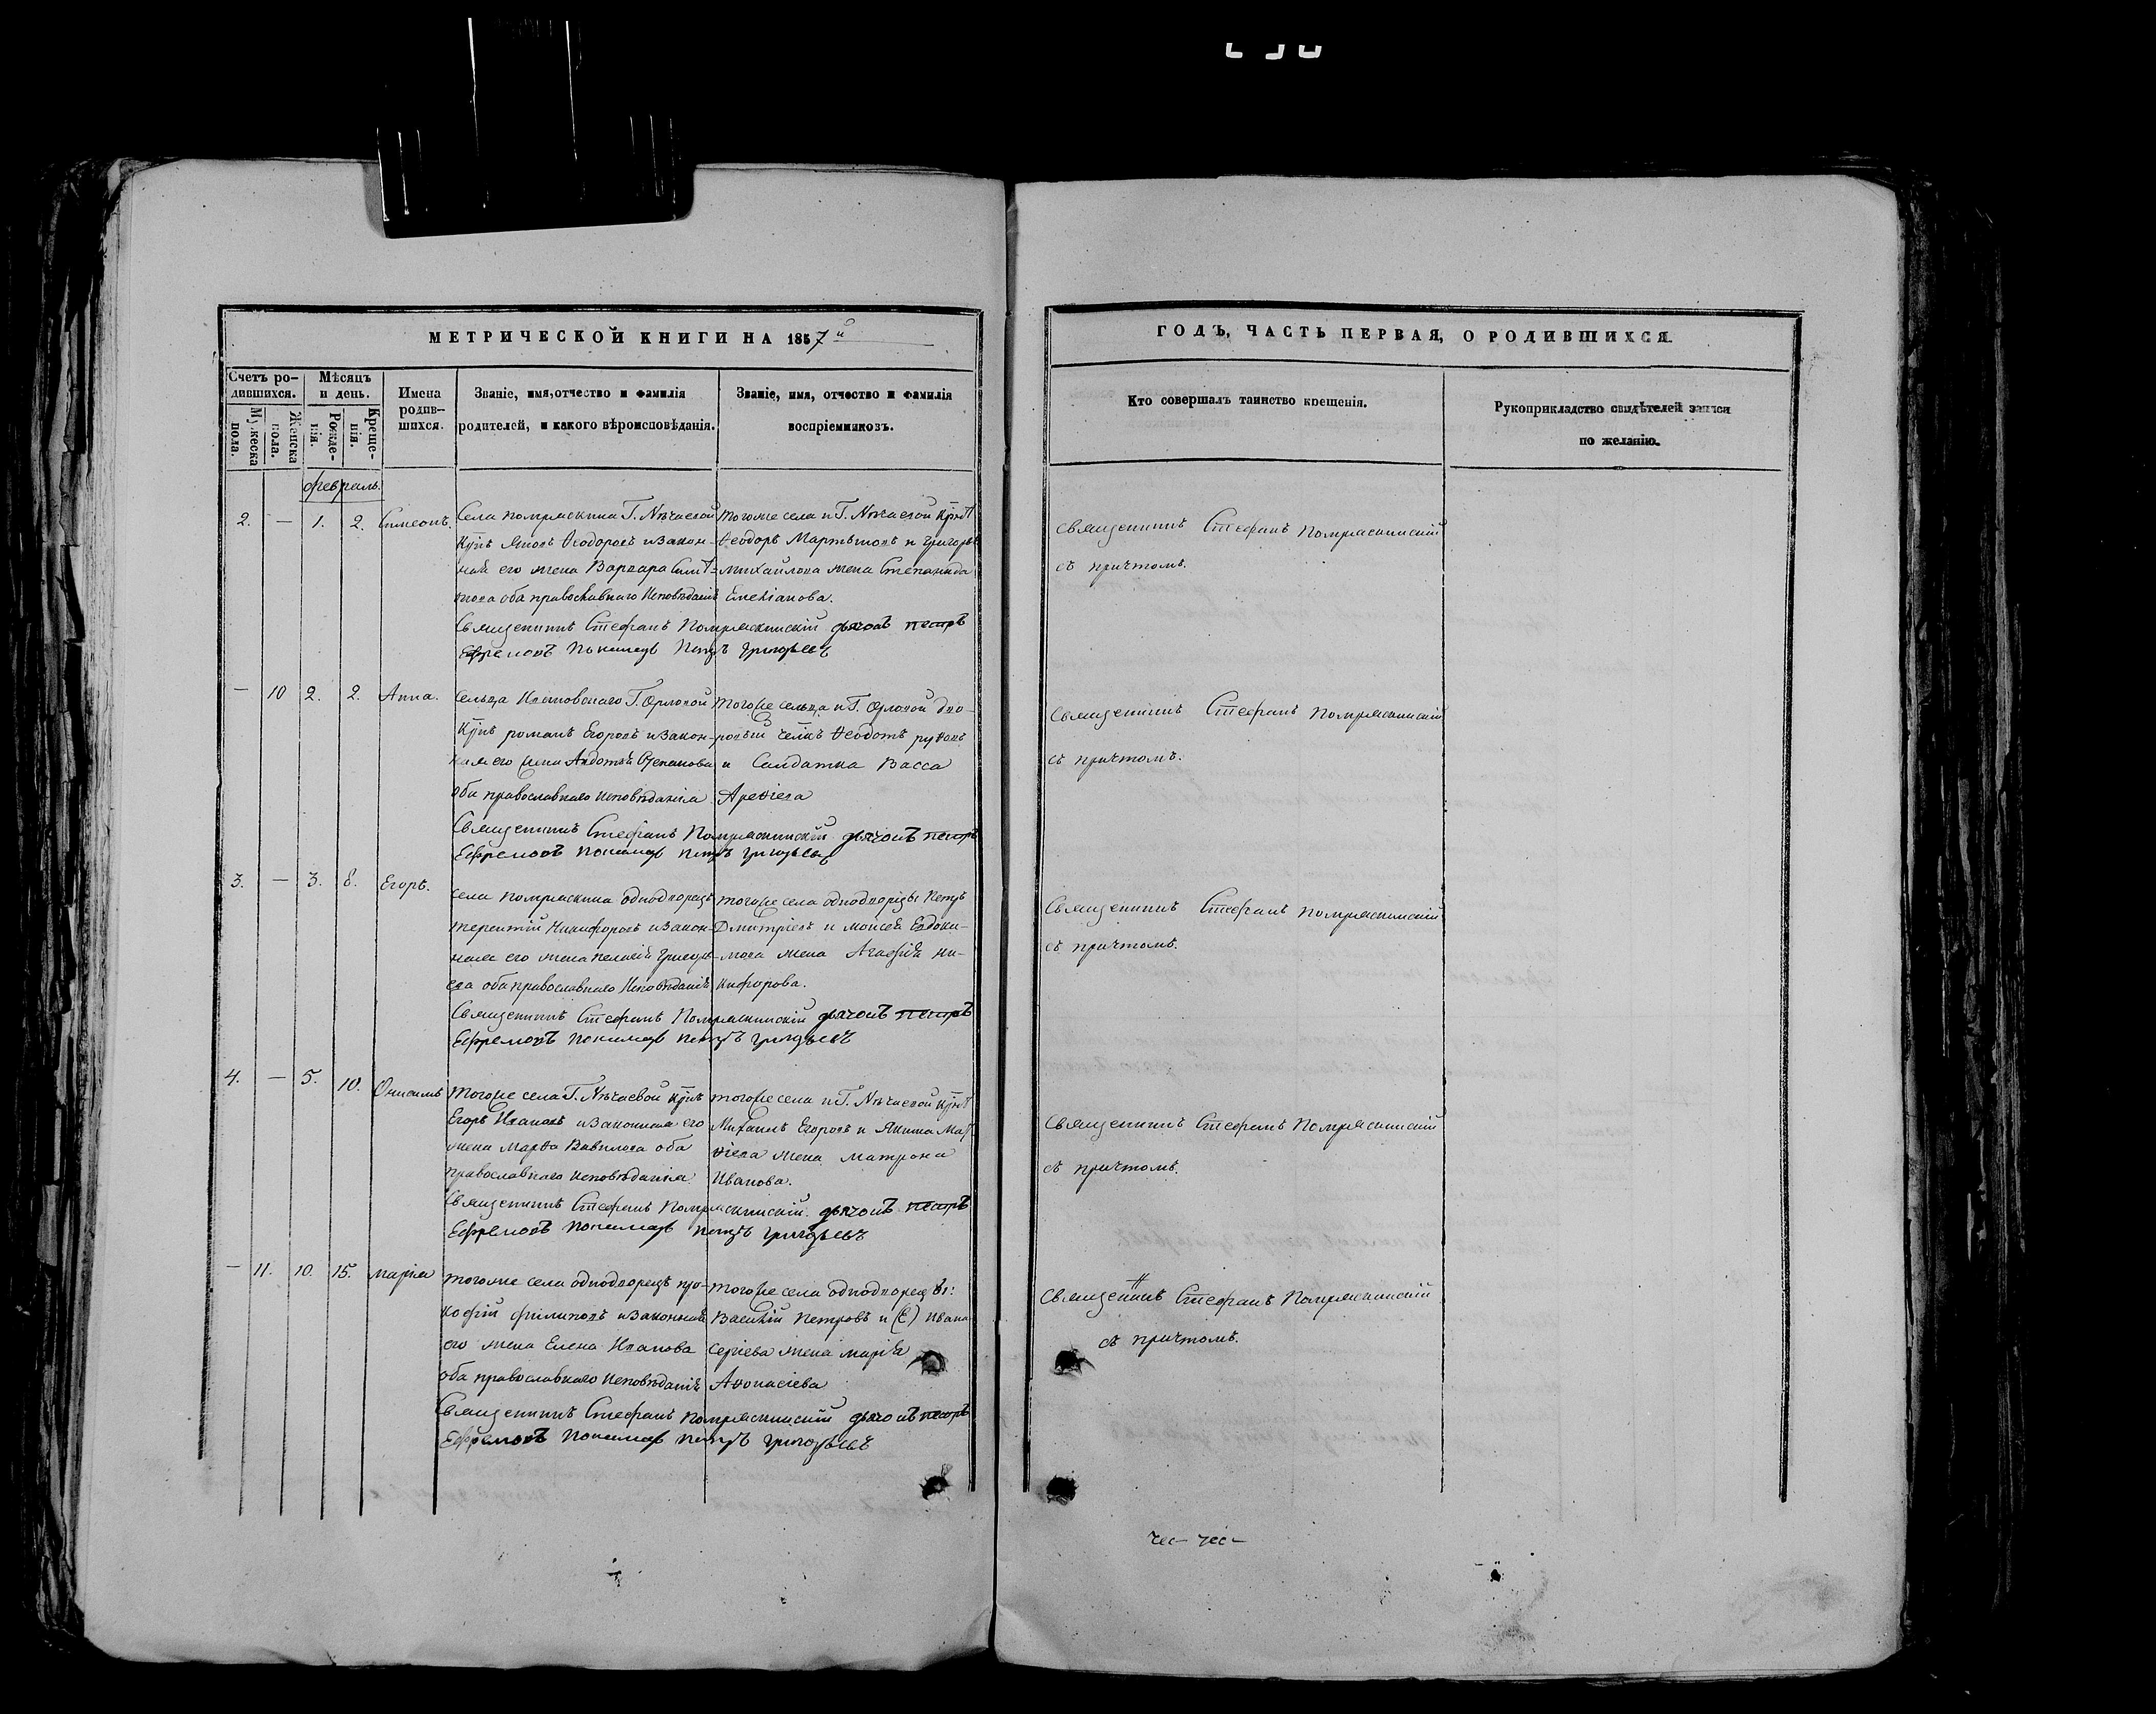 МЕТРИЧЕСКОЙ КНИГИ НА 1857й
Счетъ ро-
дившихся.
Мужеска
пола.
Женска
пола.
Мѣсяцъ
и день.
Рожде-
нія.
Креще-
нія.
Имена
родив-
шихся.
Званіе, имя, отчество и фамилія
родителей, и какого вѣроисповѣданія.
Званіе, имя, отчество и фамилія
воспріемниковъ.
февраль.
2. — 1. 2. Симеонъ.
Села Потряскина Г. Нѣчаевой
Яковъ Ѳеодоровъ и закон-
ная его жена Варвара
оба православнаго исповѣданія
тогоже села и Г. Нѣчаевой
Ѳеодоръ Мартыновъ и Григорья
Михайлова жена Степанида
Емеліанова.
Священникъ Стефанъ Потряскинскій дьячокъ Петръ
Ефремовъ Пономарь Петръ Григорьевъ
— 10 2. 2. Анна.
сельца Г. Орловой
романъ Егоровъ и закон-
ная его жена Авдотья Степанова
оба православнаго исповѣданія
тогоже сельца и Г. Орловой дво-
ровый Ѳеодотъ
и Солдатка Васса
Ареѳіева
Священникъ Стефанъ Потряскинскій дьячокъ Петръ
Ефремовъ Пономарь Петръ Григорьевъ
3. — 3. 8. Егоръ.
села Потряскина однодворецъ
терентій Никифоровъ и закон-
ная его жена пелагія Григорь-
ева оба православнаго исповѣданія
тогоже села однодворцы Петръ
Дмитріевъ и Моисея Евдоки-
мова жена Агафія Ни-
кифорова.
Священникъ Стефанъ Потряскинскій дьячокъ Петръ
Ефремовъ Пономарь Петръ Григорьевъ
4. — 5. 10. Онисимъ
тогоже села Г. Нѣчаевой
Егоръ Ивановъ и законная его
жена Марѳа Вавилова оба
православнаго исповѣданія
тогоже села и Г. Нѣчаевой
Михаилъ Егоровъ и Якима Мат-
ѳіева жена Матрона
Иванова.
Священникъ Стефанъ Потряскинскій дьячокъ Петръ
Ефремовъ Пономарь Петръ Григорьевъ
— 11. 10. 15. марія
тогоже села однодворецъ про-
кофій филиповъ и законная
его жена Елена Иванова
оба православнаго исповѣданія
тогоже села однодворцы:
Василій Петровъ и (Е) Ивана
Сергіева жена марія
Аѳонасіева
Священникъ Стефанъ Потряскинскій дьячокъ Петръ
Ефремовъ Пономарь Петръ Григорьевъ
ГОДЪ, ЧАСТЬ ПЕРВАЯ, О РОДИВШИХСЯ.
Кто совершалъ таинство крещенія.
Рукоприкладство свидѣтелей записи
по желанію.
Священникъ Стефанъ Потряскинскій
съ причтомъ.
Священникъ Стефанъ Потряскинскій
съ причтомъ.
Священникъ Стефанъ Потряскинскій
съ причтомъ.
Священникъ Стефанъ Потряскинскій
съ причтомъ.
Священникъ Стефанъ Потряскинскій
съ причтомъ.